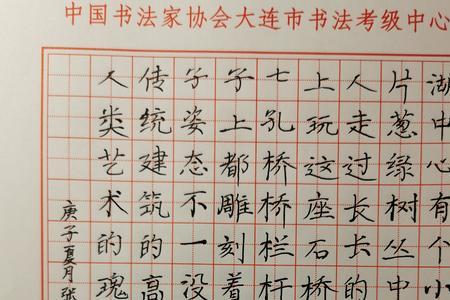 中国书法家协会大连市书法考级中心
湖中心有个小
片葱绿树丛中
人走过长长的
上玩这座石桥
七孔桥桥栏杆
子上都雕刻着
子姿态不一没
传统建筑的高
人类艺术的瑰
庚子夏月张